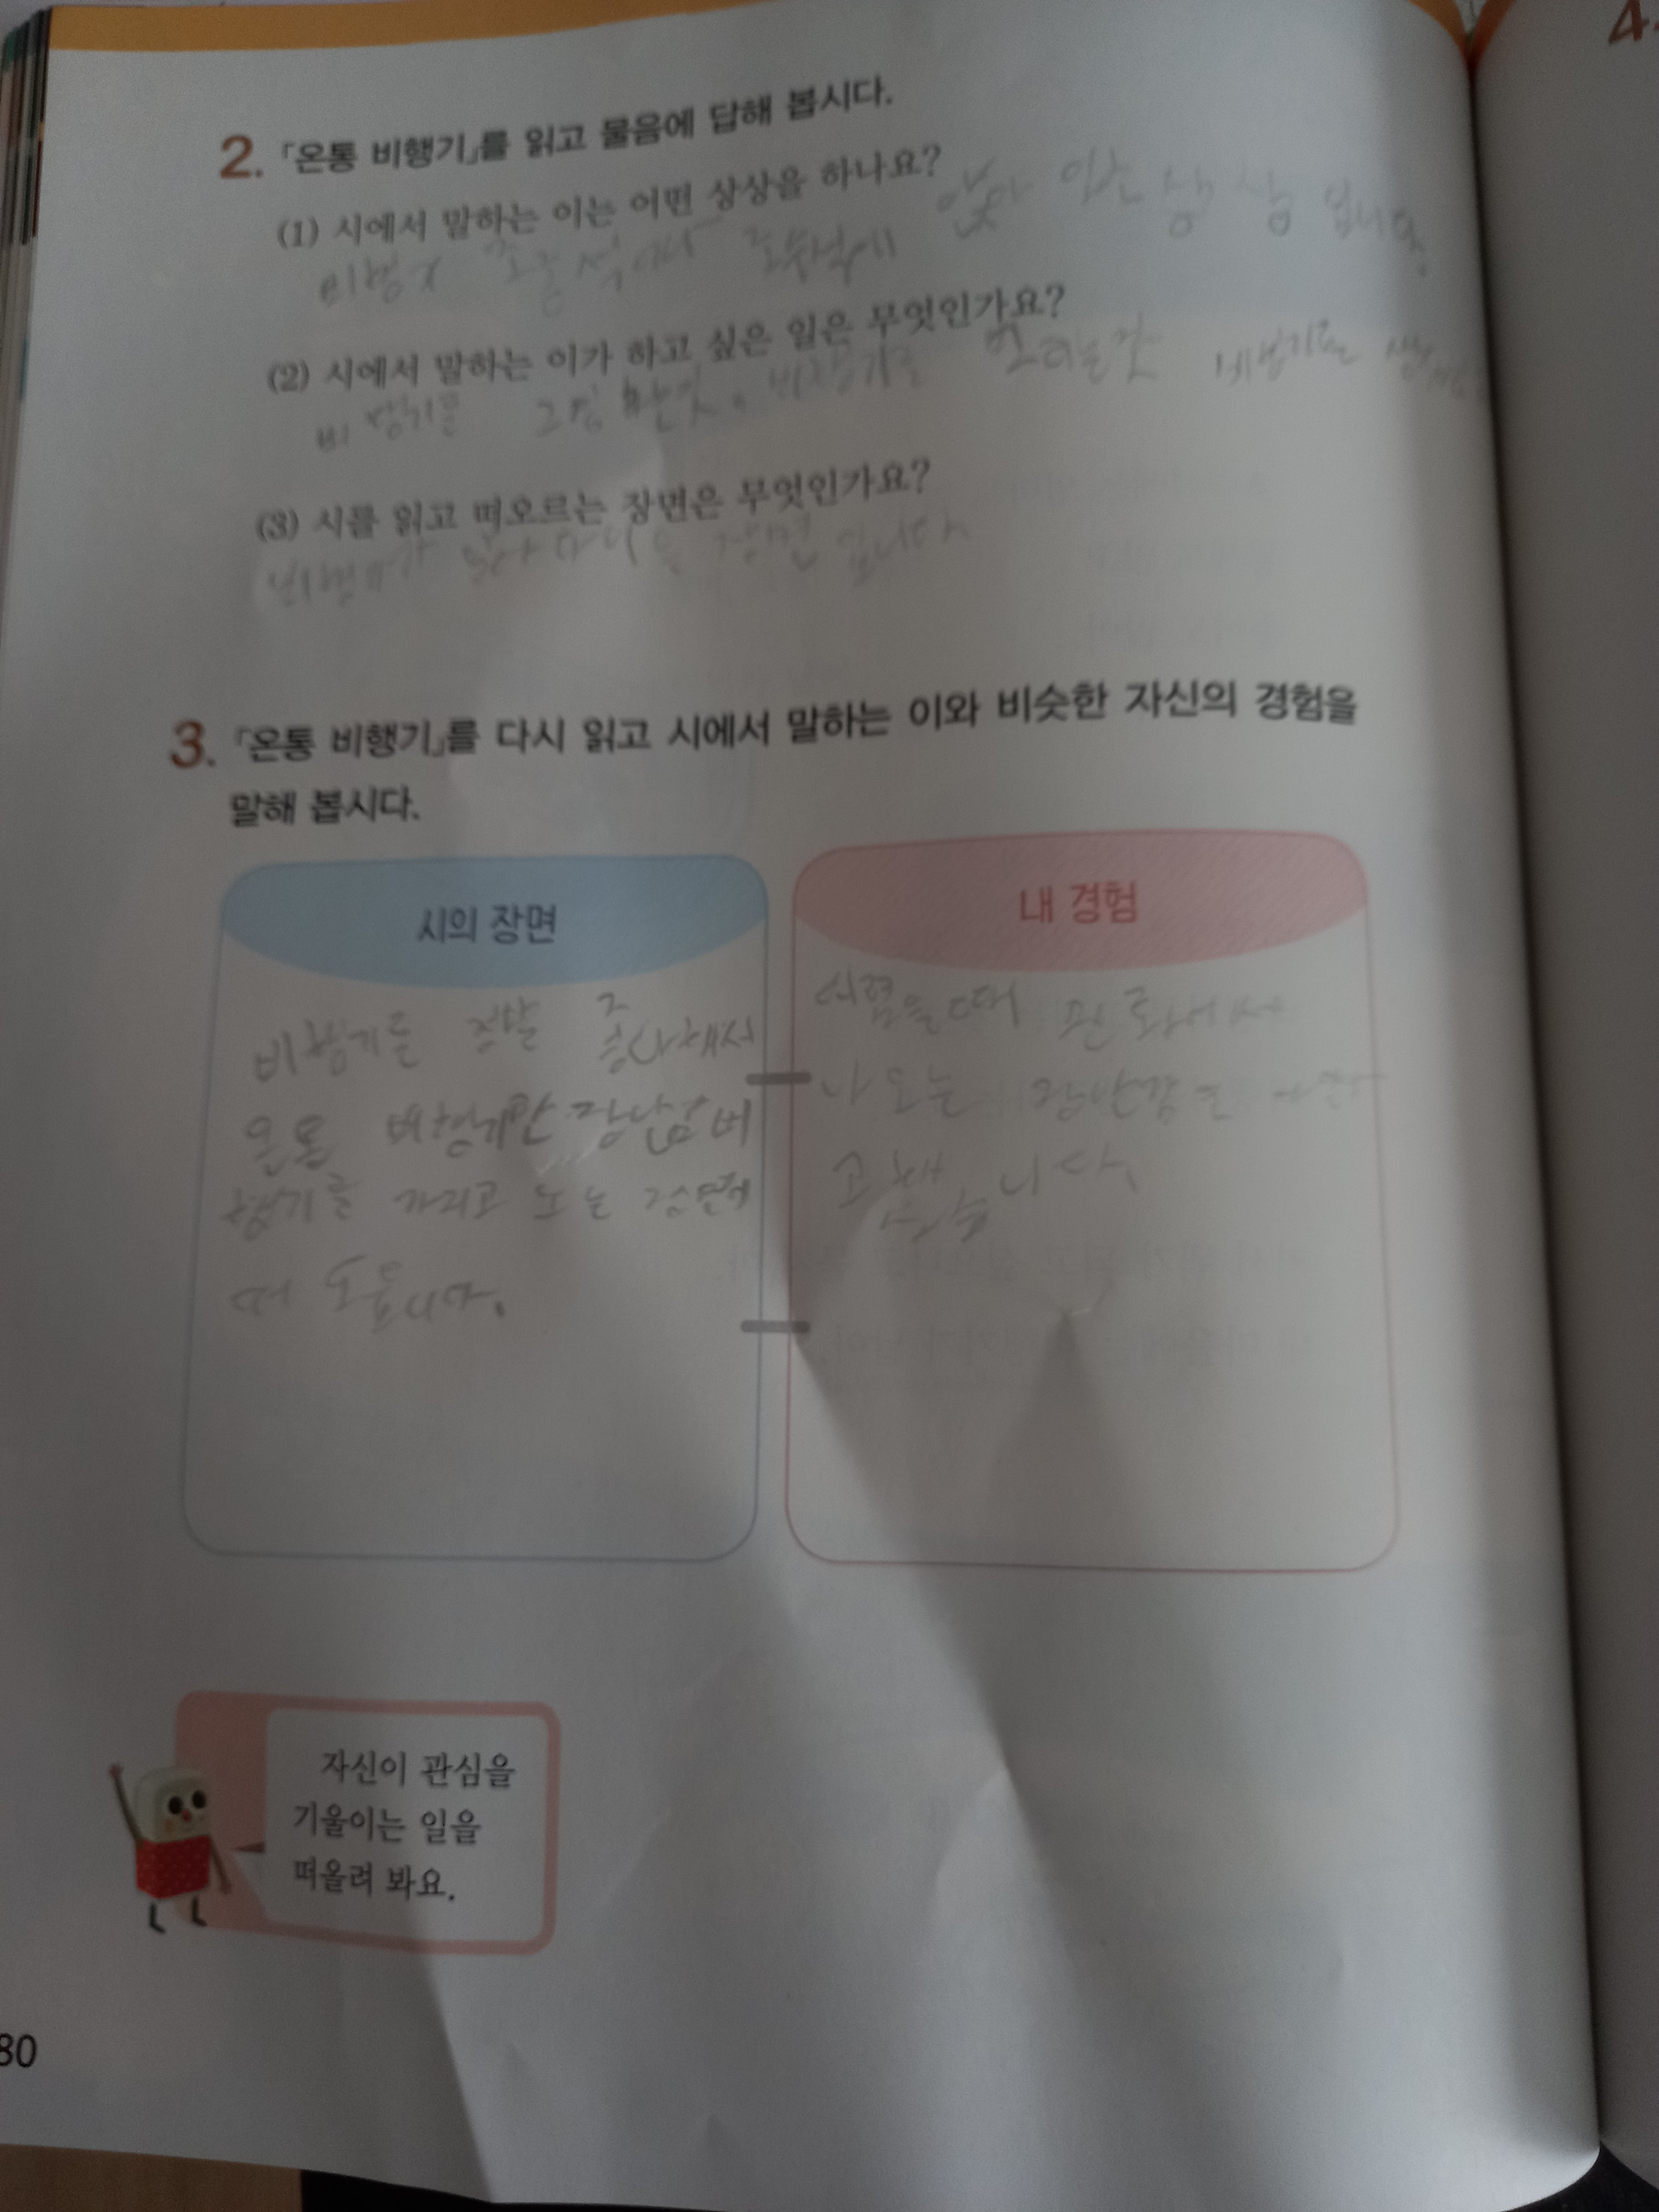 2. 「온통 비행기」를 읽고 물음에 답해 봅시다.
(1) 시에서 말하는 이는 어떤 상상을 하나요?
조수석에 앉아 있는 상상 입니다.
(2) 시에서 말하는 이가 하고 싶은 일은 무엇인가요?
비행기를 그림 비행기를
(3) 시를 읽고 떠오르는 장면은 무엇인가요?
장면 입니다
3. 「온통 비행기」를 다시 읽고 시에서 말하는 이와 비슷한 자신의 경험을
말해 봅시다.
시의 장면
비행기를 정말 좋아해서
비행기만 장난감 비
행기를 가지고 노는 장면이
떠 오릅니다.
내 경험
어렸을때 만화에서
나오는 장난감을
고 했습니다
자신이 관심을
기울이는 일을
떠올려 봐요.
80
4